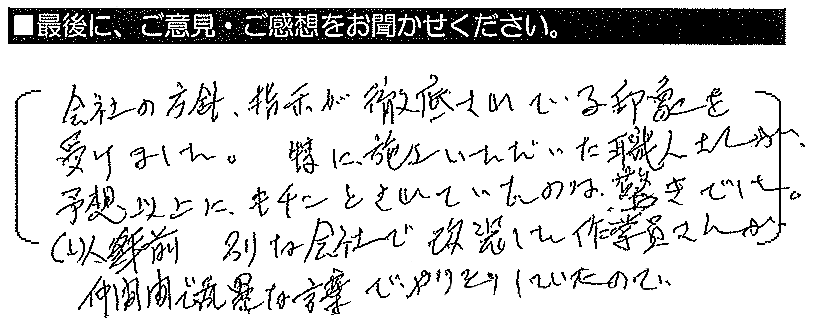 ■最後に、ご意見・ご感想をお聞かせください。
会社の方針、指示が徹底されている印象を
受けました。 特に、施工いただいた職人さんが、
予想以上に、キチンとされていたのは、驚きでした。
(以前 別な会社で改装した作業員さんが
仲間内で乱暴な言葉でやりとりしていたので、